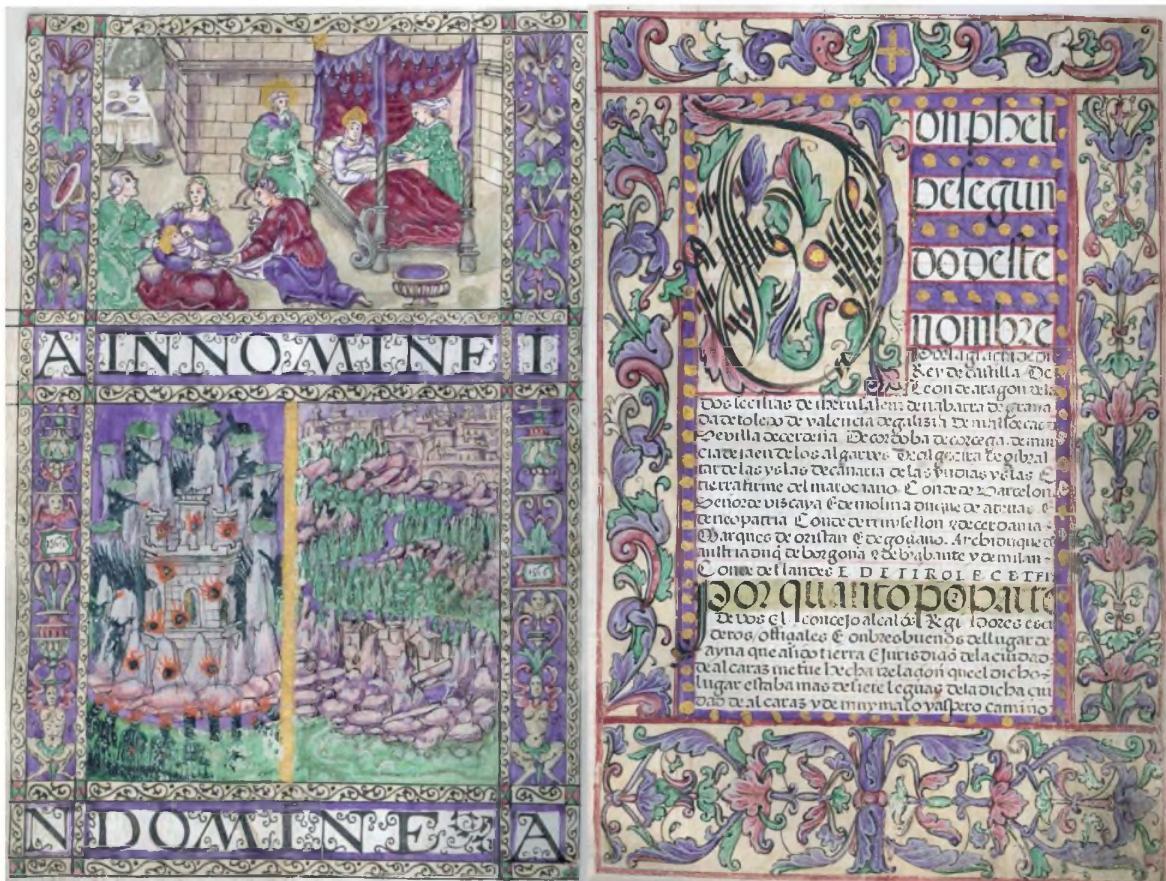 A INNOMINE I
1565
1565
N DOMINE A
on pheli
pe segun
do deste
nombre
por la gracia de dios
Rey de castilla De
Leon de aragon de la
dos secilias de iherusalem de nabarra de grana
da de toledo de valencia de galizia De mallorcas
Sevilla de cerdeña De cordoba de corcega de mur
cia de jaen de los algarves De algezira de gibral
tar de las yslas de canaria de las yndias yslas E
tierra firme del mar oceano Conde de Barcelona
Señor de viscaya E de molina duque de atenas E
de neopatria Conde de rruisellon E de cerdania
Marques de oristan E de goziano Archiduque de
austria duq de borgoña E de brabante y de milan
Conde de flandes E DE TIROL ECETERA
por quanto por parte
de vos el concejo alcaldes Regidores escu
deros offiçiales E onbres buenos del lugar de
ayna que a sido tierra E jurisdiçion de la ciudad
de alcaraz me fue hecha relaçion que el dicho
lugar estaba mas de siete leguas de la dicha ciu
dad de alcaraz y de muy malo y aspero camino